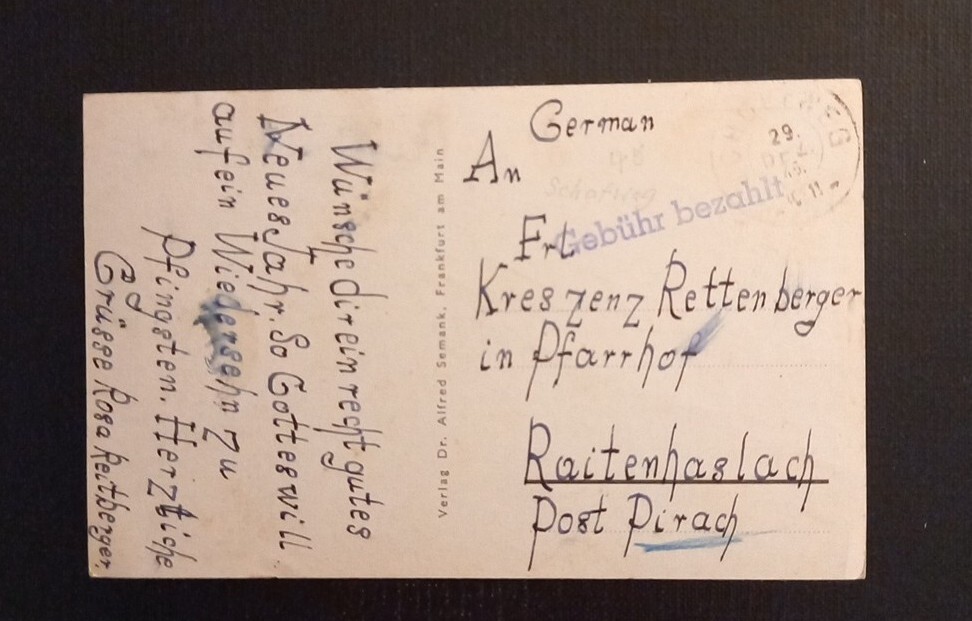 Wünsche dir ein recht gutes
Neues Jahr. So Gottes will
auf ein Wiedersehn zu
Pfingsten. Herzliche
Grüsse Rosa Reitberger.
Verlag Dr. Alfred Semank, Frankfurt am Main
German
An
29.
Gebühr bezahlt
Frl.
Kreszenz Rettenberger
in Pfarrhof
Raitenhaslach
Post Pirach